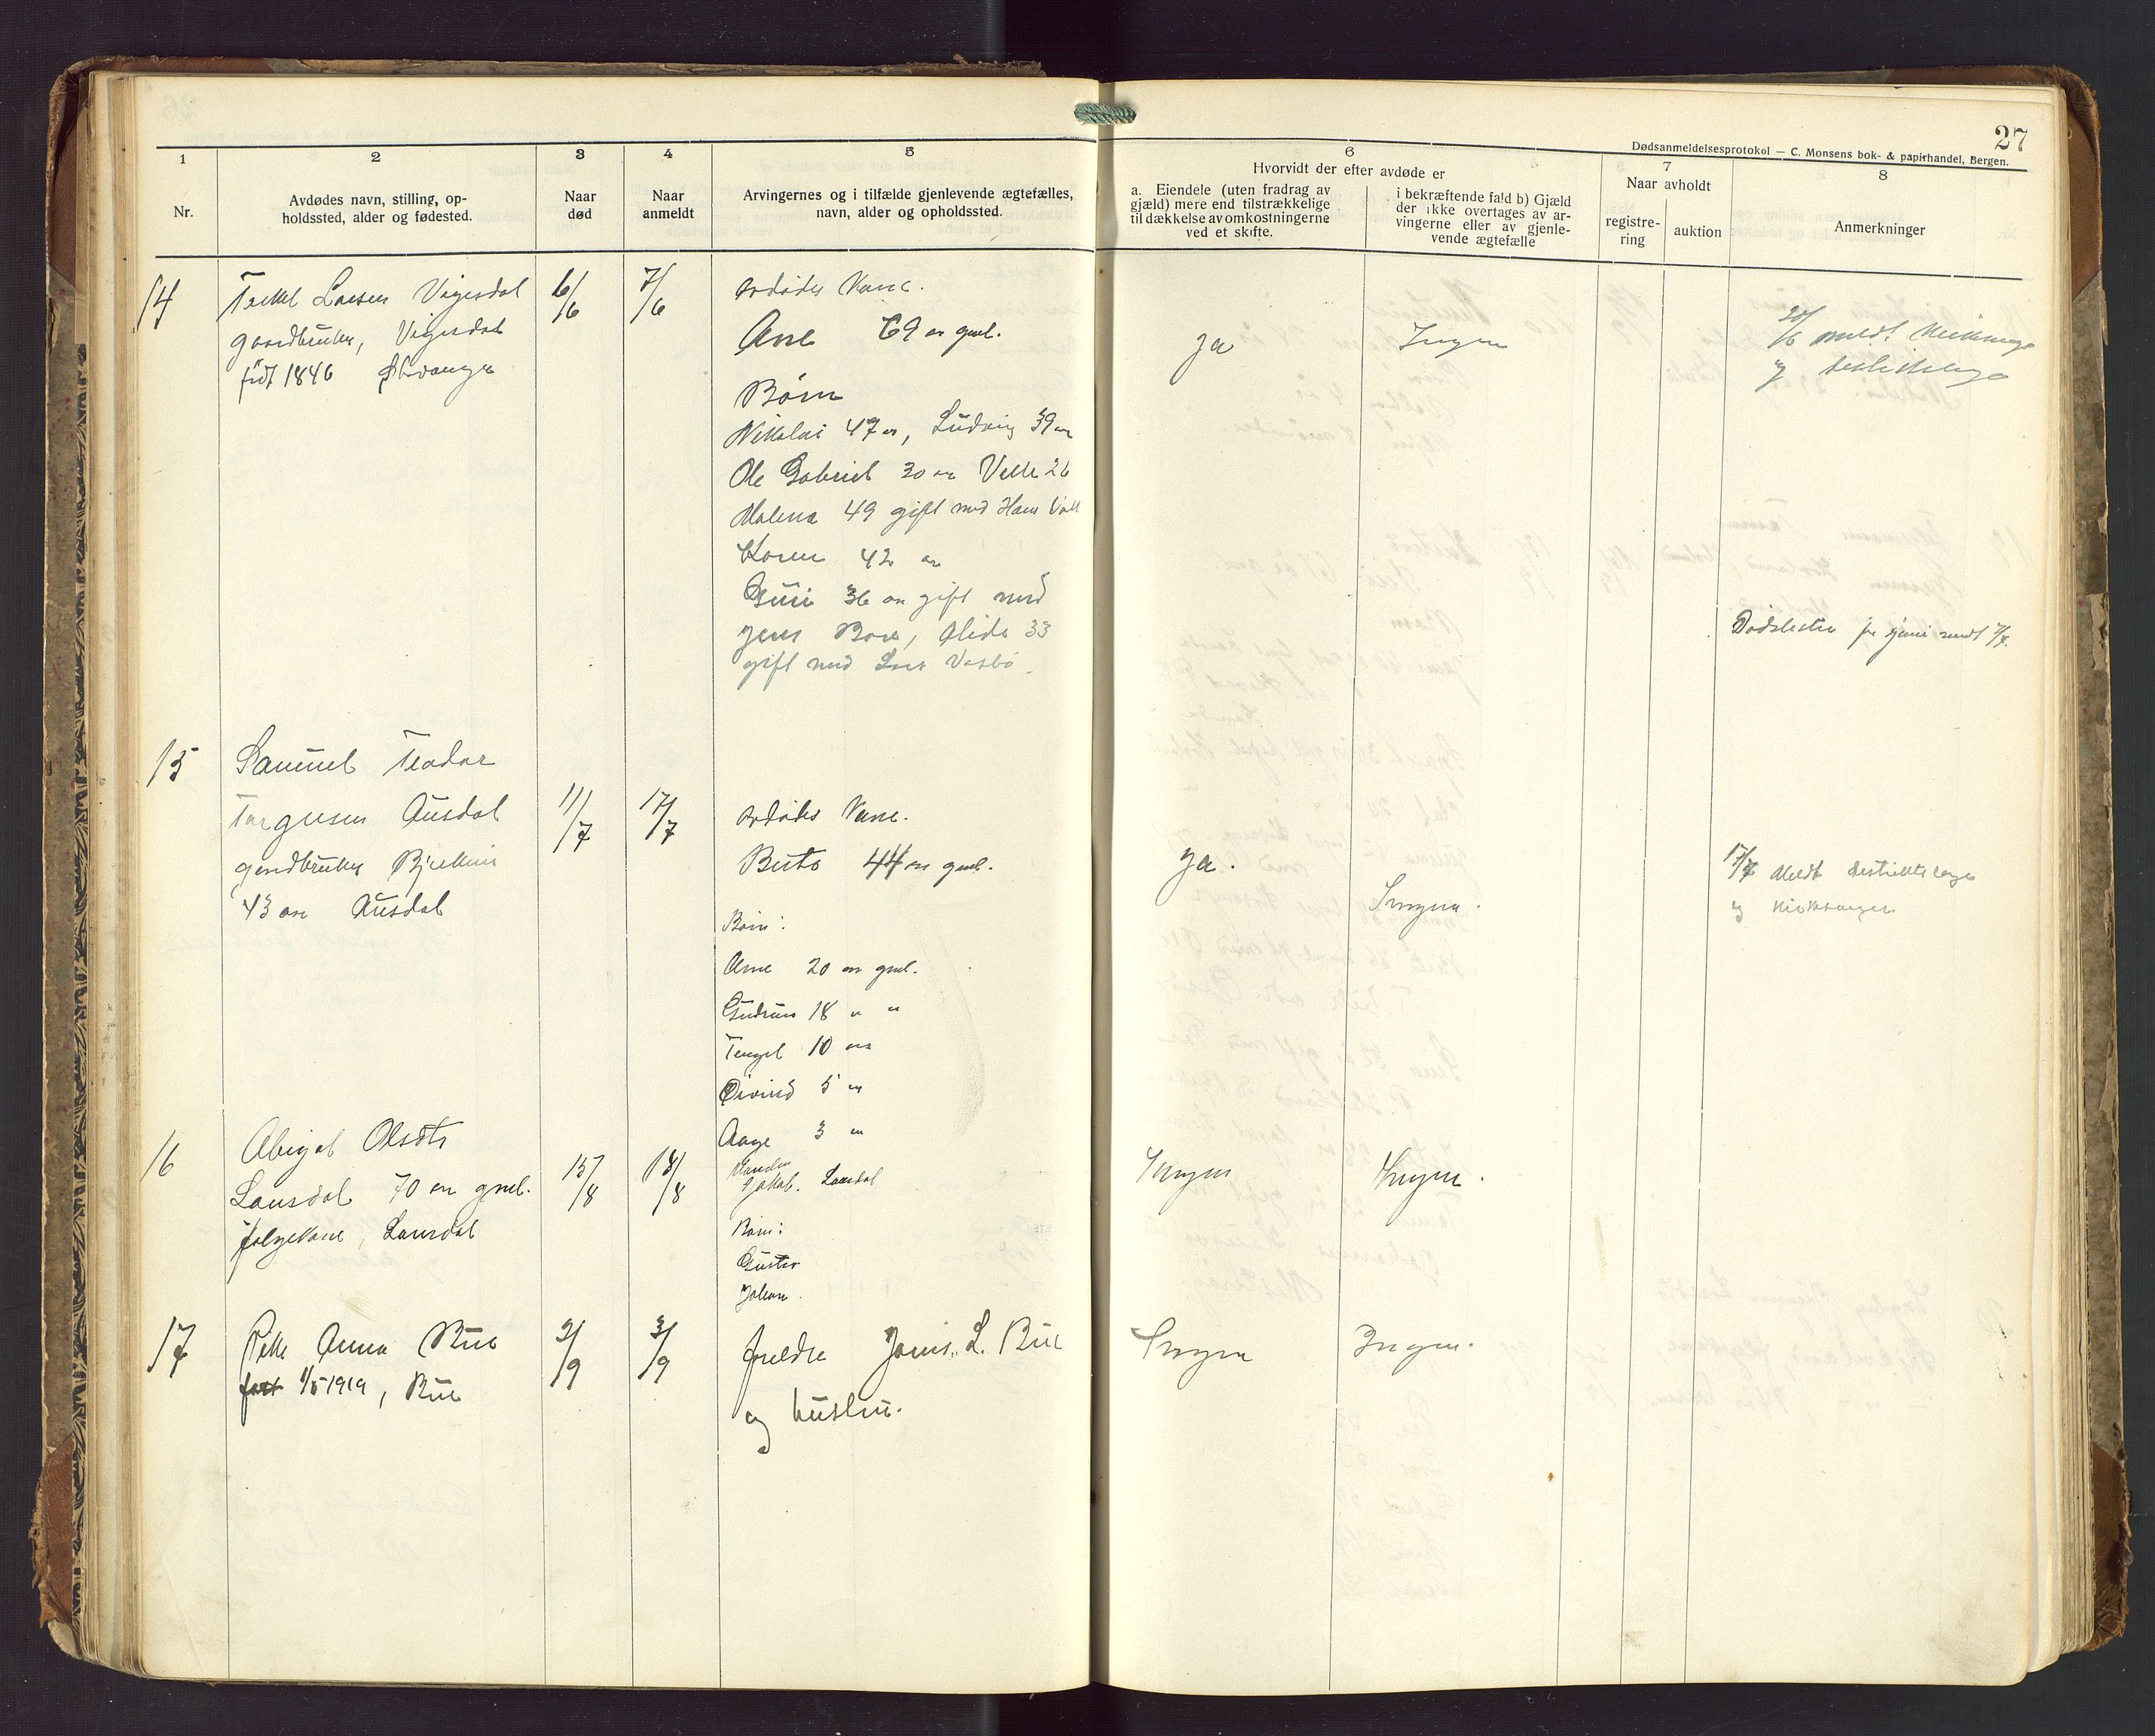 27
Dødsanmeldelsesprotokol — C. Monsens bok- & papirhandel, Bergen.
1
Nr.
2
Avdødes navn, stilling, op-
holdssted, alder og fødested.
3
Naar
død
4
Naar
anmeldt
5
Arvingernes og i tilfælde gjenlevende ægtefælles,
navn, alder og opholdssted.
6
Hvorvidt der efter avdøde er
a. Eiendele (uten fradrag av
gjæld) mere end tilstrækkelige
til dækkelse av omkostningerne
ved et skifte.
i bekræftende fald b) Gjæld
der ikke overtages av ar-
vingerne eller av gjenle-
vende ægtefælle
7
Naar avholdt
registre-
ring
auktion
8
Anmerkninger
14
Larsen Vigesdal
gaardbruker, Vigesdal
født 1846
6/6
7/6
avdødes kone.
Ane 69 aar gml.
Børn
Nikolai 47 aar, Ludvig 39 aar
Ole Gabriel 30 aar 26
Malena 49 gift med Hans
Karen 42 aar
Guri 36 aar gift med
Jens Boe, Alida 33
gift med Lars Vasbø.
ja
Ingen
20/6 meldt
og
for juni sendt 7/7.
15
Samuel Teodor
Torgersen Ausdal
gardbruker
43 aar Ausdal
11/7
17/7
avdødes kone.
Berta 44 aar gml.
Børn:
Arne 20 aar gml.
Gudrun 18 " "
Tengel 10 aar
Øivind 5 aar
Aage 3 aar
ja.
Ingen.
17/7 Meldt
og kirkesanger
16
Abigal Olsdtr
Lansdal 70 aar gml.
Lansdal
15/8
18/8
Jakob. Lansdal
Børn:
Gustav
Johan.
Ingen
Ingen.
17
Anna Bue
1/5 1919, Bue
2/9
3/9
foreldre Jonas. L. Bue
og hustru.
Ingen
Ingen.